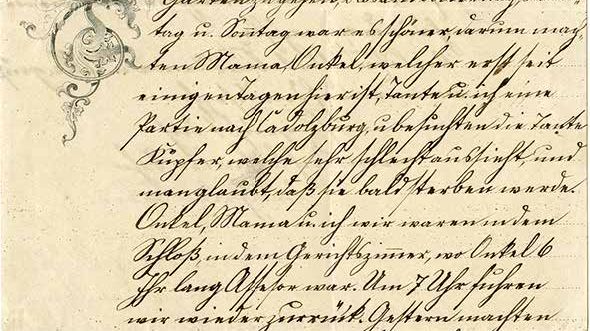 tag u. Sonntag war es schöner, darum mach-
ten Mama, Onkel, welcher erst seit
einigen Tagen hier ist, Tante u. ich eine
Partie nach Cadolzburg, u besuchten die Tante
Kupfer, welche sehr schlecht aussieht, und
man glaubt, daß sie bald sterben werde.
Onkel, Mama u. ich wir waren in dem
Schloß in dem Gerichtszimmer, wo Onkel 6
Jhr lang Assesor war. Um 7 Uhr fuhren
wir wieder zurrück. Gestern machten